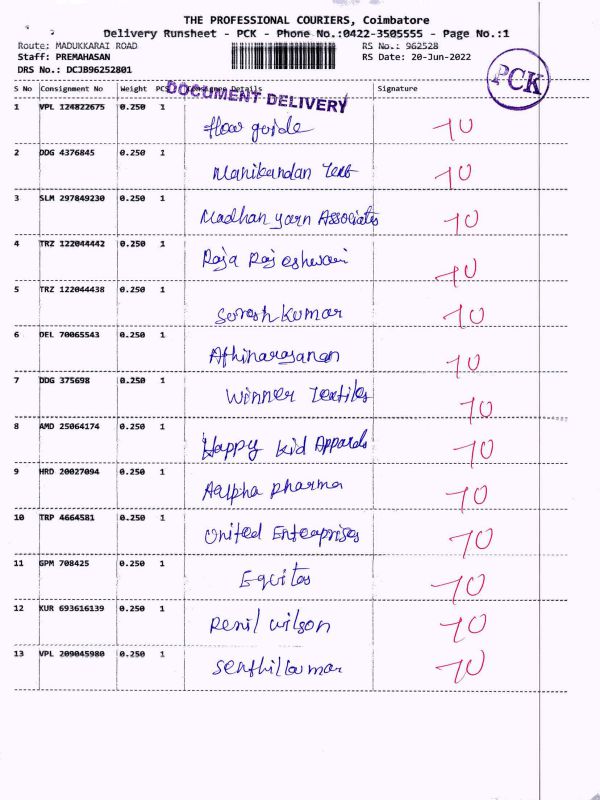 THE PROFESSIONAL COURIERS, Coimbatore
Delivery Runsheet - PCK - Phone No.:0422-3505555 - Page No.:1
Route: MADUKKARAI ROAD RS No.: 962528
Staff: PREMAHASAN RS Date: 20-Jun-2022
DRS No.: DCJB96252801
PCK
S No Consignment No Weight PCS Consignee Details Signature
DOCUMENT DELIVERY
1 VPL 124822675 0.250 1 flow guide 70
2 DDG 4376845 0.250 1 Manikandan Text 70
3 SLM 297849230 0.250 1 Madhan yarn Associates 70
4 TRZ 122044442 0.250 1 Raja Rajeshwari 70
5 TRZ 122044438 0.250 1 Suresh kumar 70
6 DEL 70065543 0.250 1 Athinarayanan 70
7 DDG 375698 0.250 1 Winner Textiles 70
8 AMD 25064174 0.250 1 Happy kid Apparels 70
9 HRD 20027094 0.250 1 Aalpha pharma 70
10 TRP 4664581 0.250 1 United Enterprises 70
11 GPM 708425 0.250 1 Equitas 70
12 KUR 693616139 0.250 1 Renil wilson 70
13 VPL 209045980 0.250 1 Senthilkumar 70